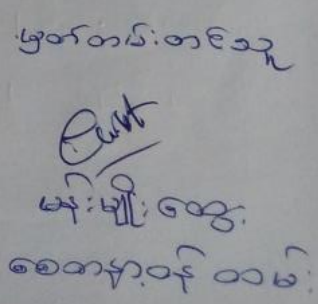 မှတ်တမ်းတင်သူ
မန်းမျိုးထွေး
စေတနာ့ဝန်ထမ်း